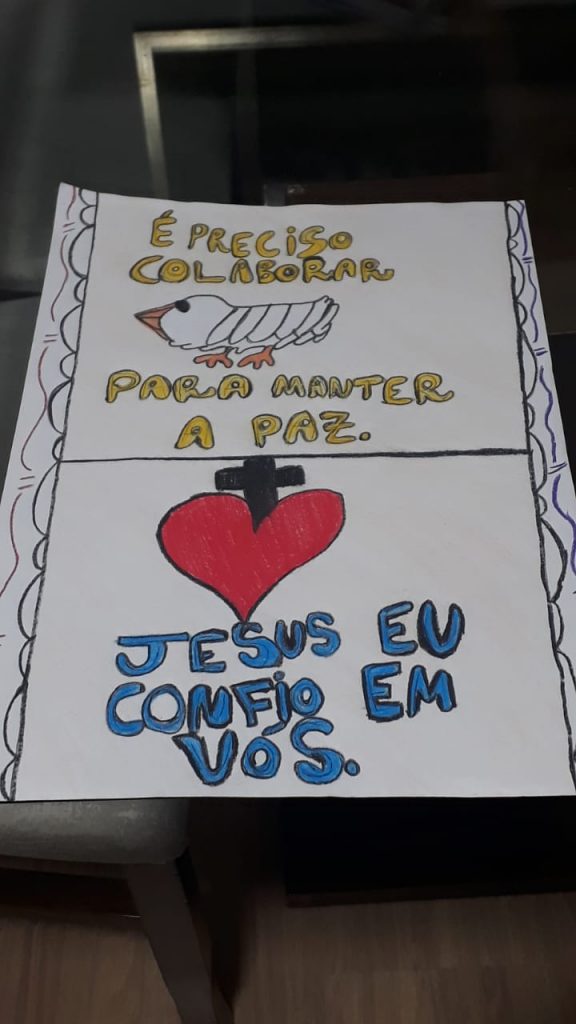 É PRECISO
COLABORAR
PARA MANTER
A PAZ.
JESUS EU
CONFIO EM
VÓS.